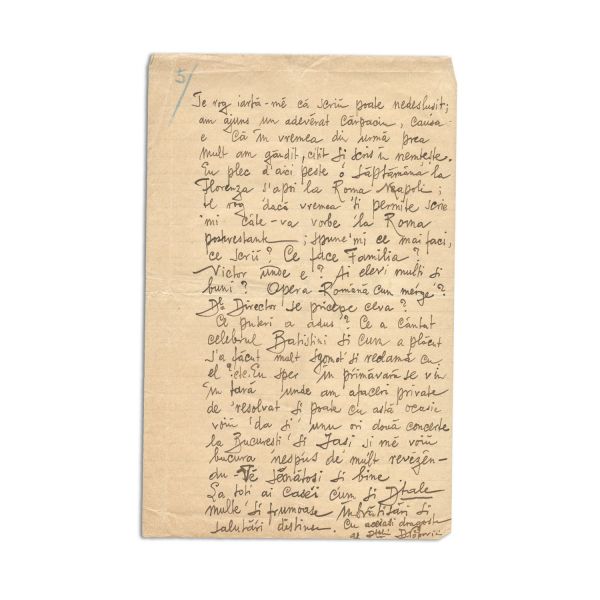 5/
Te rog iartă-mě că scriu poate nedeslușit;
am ajuns un adevěrat cârpaciu, causa-
e că în vremea din urmă prea
mult am găndit, citit și scris în nemțește.
Eu plec d'aci peste o săptămână la
Florenza s'apoi la Roma Neapoli;
te rog dacă vremea 'ți permite scrie
mi câte-va vorbe la Roma
postrestante; spune'mi ce mai faci,
ce scrii? Ce face Familia?
Victor unde e? Ai elevi mulți și
buni? Opera Română cum merge?
Dl. Director se pricepe ceva?
Ce puteri a adus? Ce a cântat
celebrul Batistini și cum a plăcut
s'a făcut mult sgomot și reclamă cu
el etc. Eu sper în primăvară se viu
în țară unde am afaceri private
de resolvat și poate cu astă ocasie
voiu da și unu ori două concerte
la București și Iași și mě voiu
bucura nespus de mult revězěn-
du-Te sěnătoși și bine
La toți ai casei cum și Dtale
multe și frumoase îmbrățișări și
salutări destinse. Cu aceeași dragoste
al Dtale